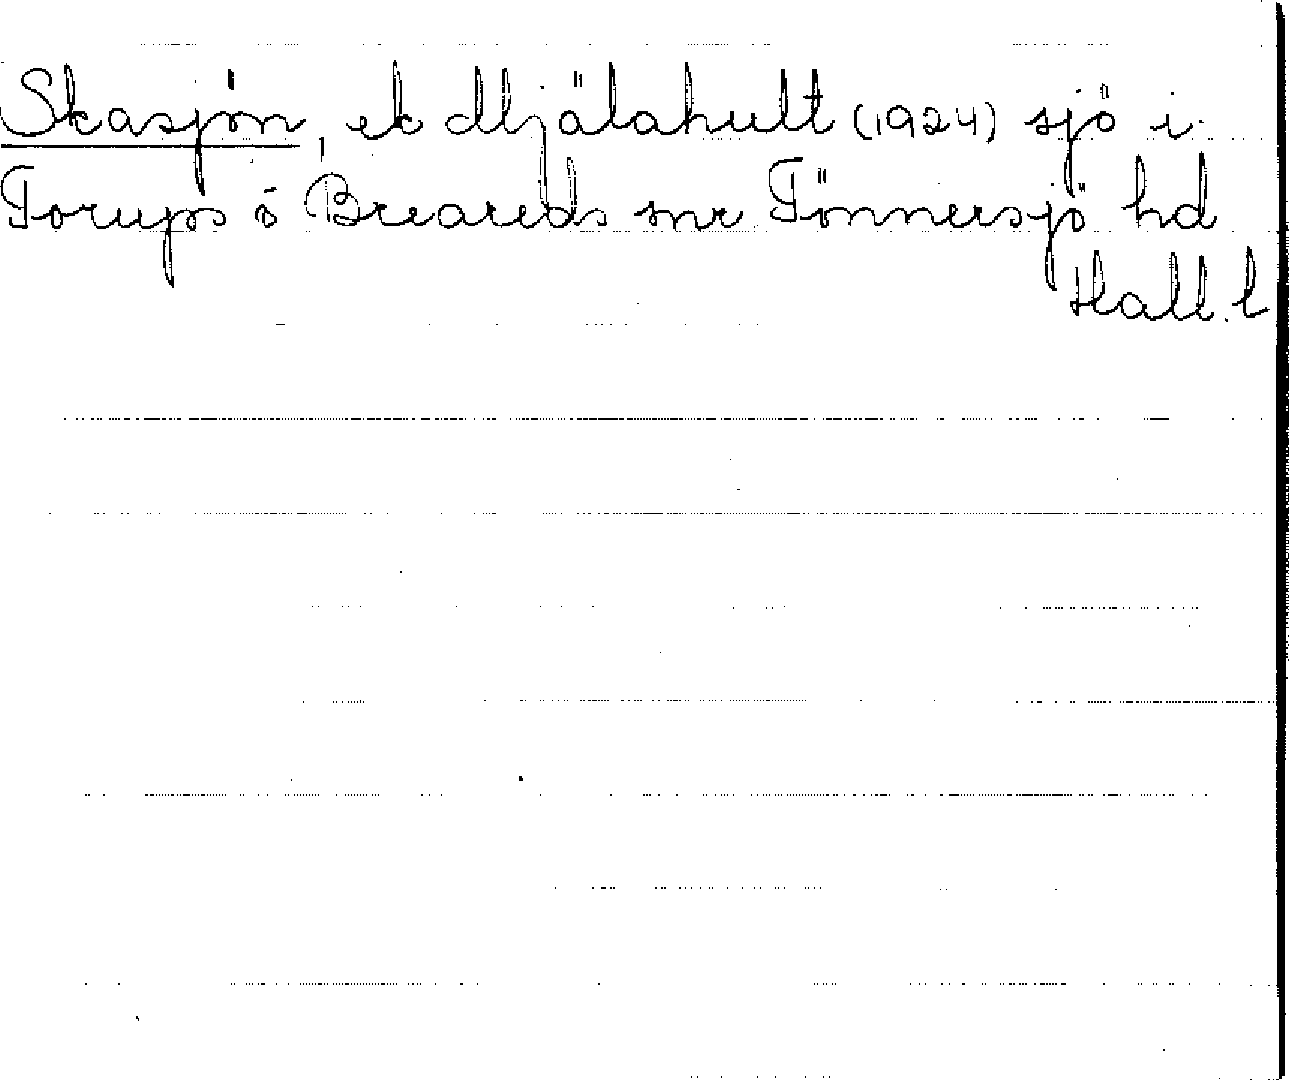 Skasjön, ek Mjälahult (1924) sjö i
Torups o Breareds snr Tönnersjö hd
Hall. l